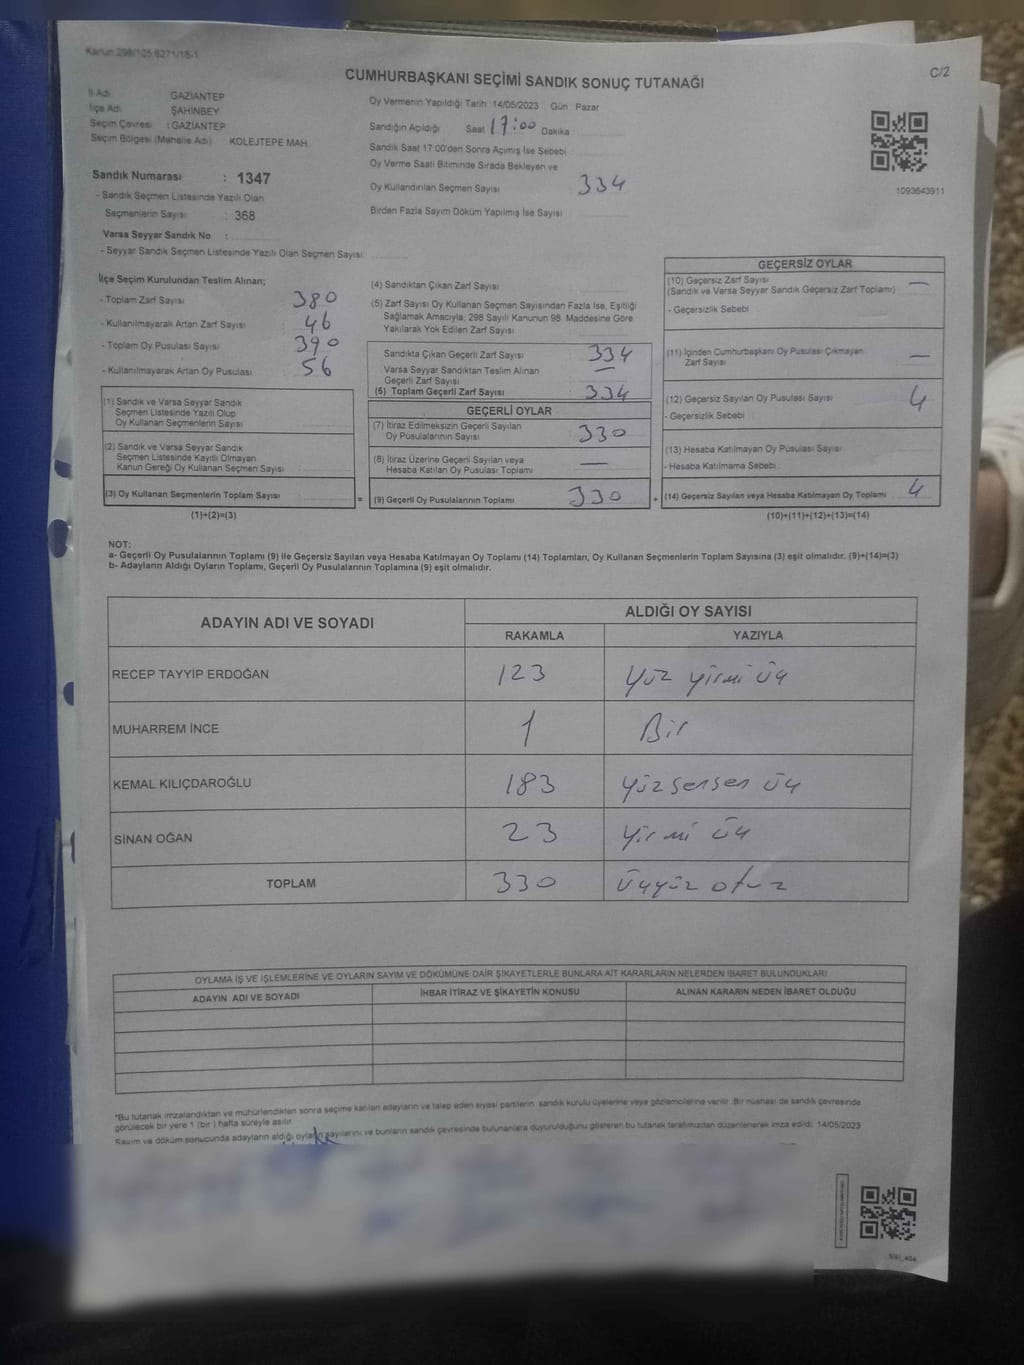 Kanun 298/105.6271/18-1
CUMHURBAŞKANI SEÇİMİ SANDIK SONUÇ TUTANAĞI
C/2
İl Adı GAZİANTEP
İlçe Adı ŞAHİNBEY
Seçim Çevresi : GAZİANTEP
Seçim Bölgesi (Mahalle Adı) KOLEJTEPE MAH.
Sandık Numarası : 1347
- Sandık Seçmen Listesinde Yazılı Olan
Seçmenlerin Sayısı : 368
Varsa Seyyar Sandık No :
- Seyyar Sandık Seçmen Listesinde Yazılı Olan Seçmen Sayısı:
Oy Vermenin Yapıldığı Tarih 14/05/2023 Gün Pazar
Sandığın Açıldığı Saat 17:00 Dakika
Sandık Saat 17:00'den Sonra Açımış İse Sebebi
Oy Verme Saati Bitiminde Sırada Bekleyen ve
Oy Kullandırılan Seçmen Sayısı 334
Birden Fazla Sayım Döküm Yapılmış İse Sayısı
1093643911
İlçe Seçim Kurulundan Teslim Alınan;
- Toplam Zarf Sayısı 380
- Kullanılmayarak Artan Zarf Sayısı 46
- Toplam Oy Pusulası Sayısı 390
- Kullanılmayarak Artan Oy Pusulası 56
(1) Sandık ve Varsa Seyyar Sandık
Seçmen Listesinde Yazılı Olup
Oy Kullanan Seçmenlerin Sayısı
(2) Sandık ve Varsa Seyyar Sandık
Seçmen Listesinde Kayıtlı Olmayan
Kanun Gereği Oy Kullanan Seçmen Sayısı
(3) Oy Kullanan Seçmenlerin Toplam Sayısı =
(1)+(2)=(3)
(4) Sandıktan Çıkan Zarf Sayısı
(5) Zarf Sayısı Oy Kullanan Seçmen Sayısından Fazla İse, Eşitliği
Sağlamak Amacıyla; 298 Sayılı Kanunun 98. Maddesine Göre
Yakılarak Yok Edilen Zarf Sayısı
Sandıkta Çıkan Geçerli Zarf Sayısı 334
Varsa Seyyar Sandıktan Teslim Alınan
Geçerli Zarf Sayısı —
(6) Toplam Geçerli Zarf Sayısı 334
GEÇERLİ OYLAR
(7) İtiraz Edilmeksizin Geçerli Sayılan
Oy Pusulalarının Sayısı 330
(8) İtiraz Üzerine Geçerli Sayılan veya
Hesaba Katılan Oy Pusulası Toplamı —
(9) Geçerli Oy Pusulalarının Toplamı 330 +
GEÇERSİZ OYLAR
(10) Geçersiz Zarf Sayısı —
(Sandık ve Varsa Seyyar Sandık Geçersiz Zarf Toplamı)
- Geçersizlik Sebebi
(11) İçinden Cumhurbaşkanı Oy Pusulası Çıkmayan
Zarf Sayısı —
(12) Geçersiz Sayılan Oy Pusulası Sayısı 4
- Geçersizlik Sebebi
(13) Hesaba Katılmayan Oy Pusulası Sayısı
- Hesaba Katılmama Sebebi
(14) Geçersiz Sayılan veya Hesaba Katılmayan Oy Toplamı 4
(10)+(11)+(12)+(13)=(14)
NOT:
a- Geçerli Oy Pusulalarının Toplamı (9) ile Geçersiz Sayılan veya Hesaba Katılmayan Oy Toplamı (14) Toplamları, Oy Kullanan Seçmenlerin Toplam Sayısına (3) eşit olmalıdır. (9)+(14)=(3)
b- Adayların Aldığı Oyların Toplamı, Geçerli Oy Pusulalarının Toplamına (9) eşit olmalıdır.
ADAYIN ADI VE SOYADI
ALDIĞI OY SAYISI
RAKAMLA YAZIYLA
RECEP TAYYİP ERDOĞAN 123 Yüz yirmi üç
MUHARREM İNCE 1 Bir
KEMAL KILIÇDAROĞLU 183 Yüzseksen üç
SİNAN OĞAN 23 Yirmi üç
TOPLAM 330 Üçyüz otuz
OYLAMA İŞ VE İŞLEMLERİNE VE OYLARIN SAYIM VE DÖKÜMÜNE DAİR ŞİKAYETLERLE BUNLARA AİT KARARLARIN NELERDEN İBARET BULUNDUKLARI
ADAYIN ADI VE SOYADI İHBAR İTİRAZ VE ŞİKAYETİN KONUSU ALINAN KARARIN NEDEN İBARET OLDUĞU
*Bu tutanak imzalandıktan ve mühürlendikten sonra seçime katılan adayların ve talep eden siyasi partilerin sandık kurulu üyelerine veya gözlemcilerine verilir. Bir nüshası da sandık çevresinde
görülecek bir yere 1 (bir) hafta süreyle asılır.
Sayım ve döküm sonucunda adayların aldığı oyların sayılarını ve bunların sandık çevresinde bulunanlara duyurulduğunu gösteren bu tutanak tarafımızdan düzenlenerek imza edildi. 14/05/2023